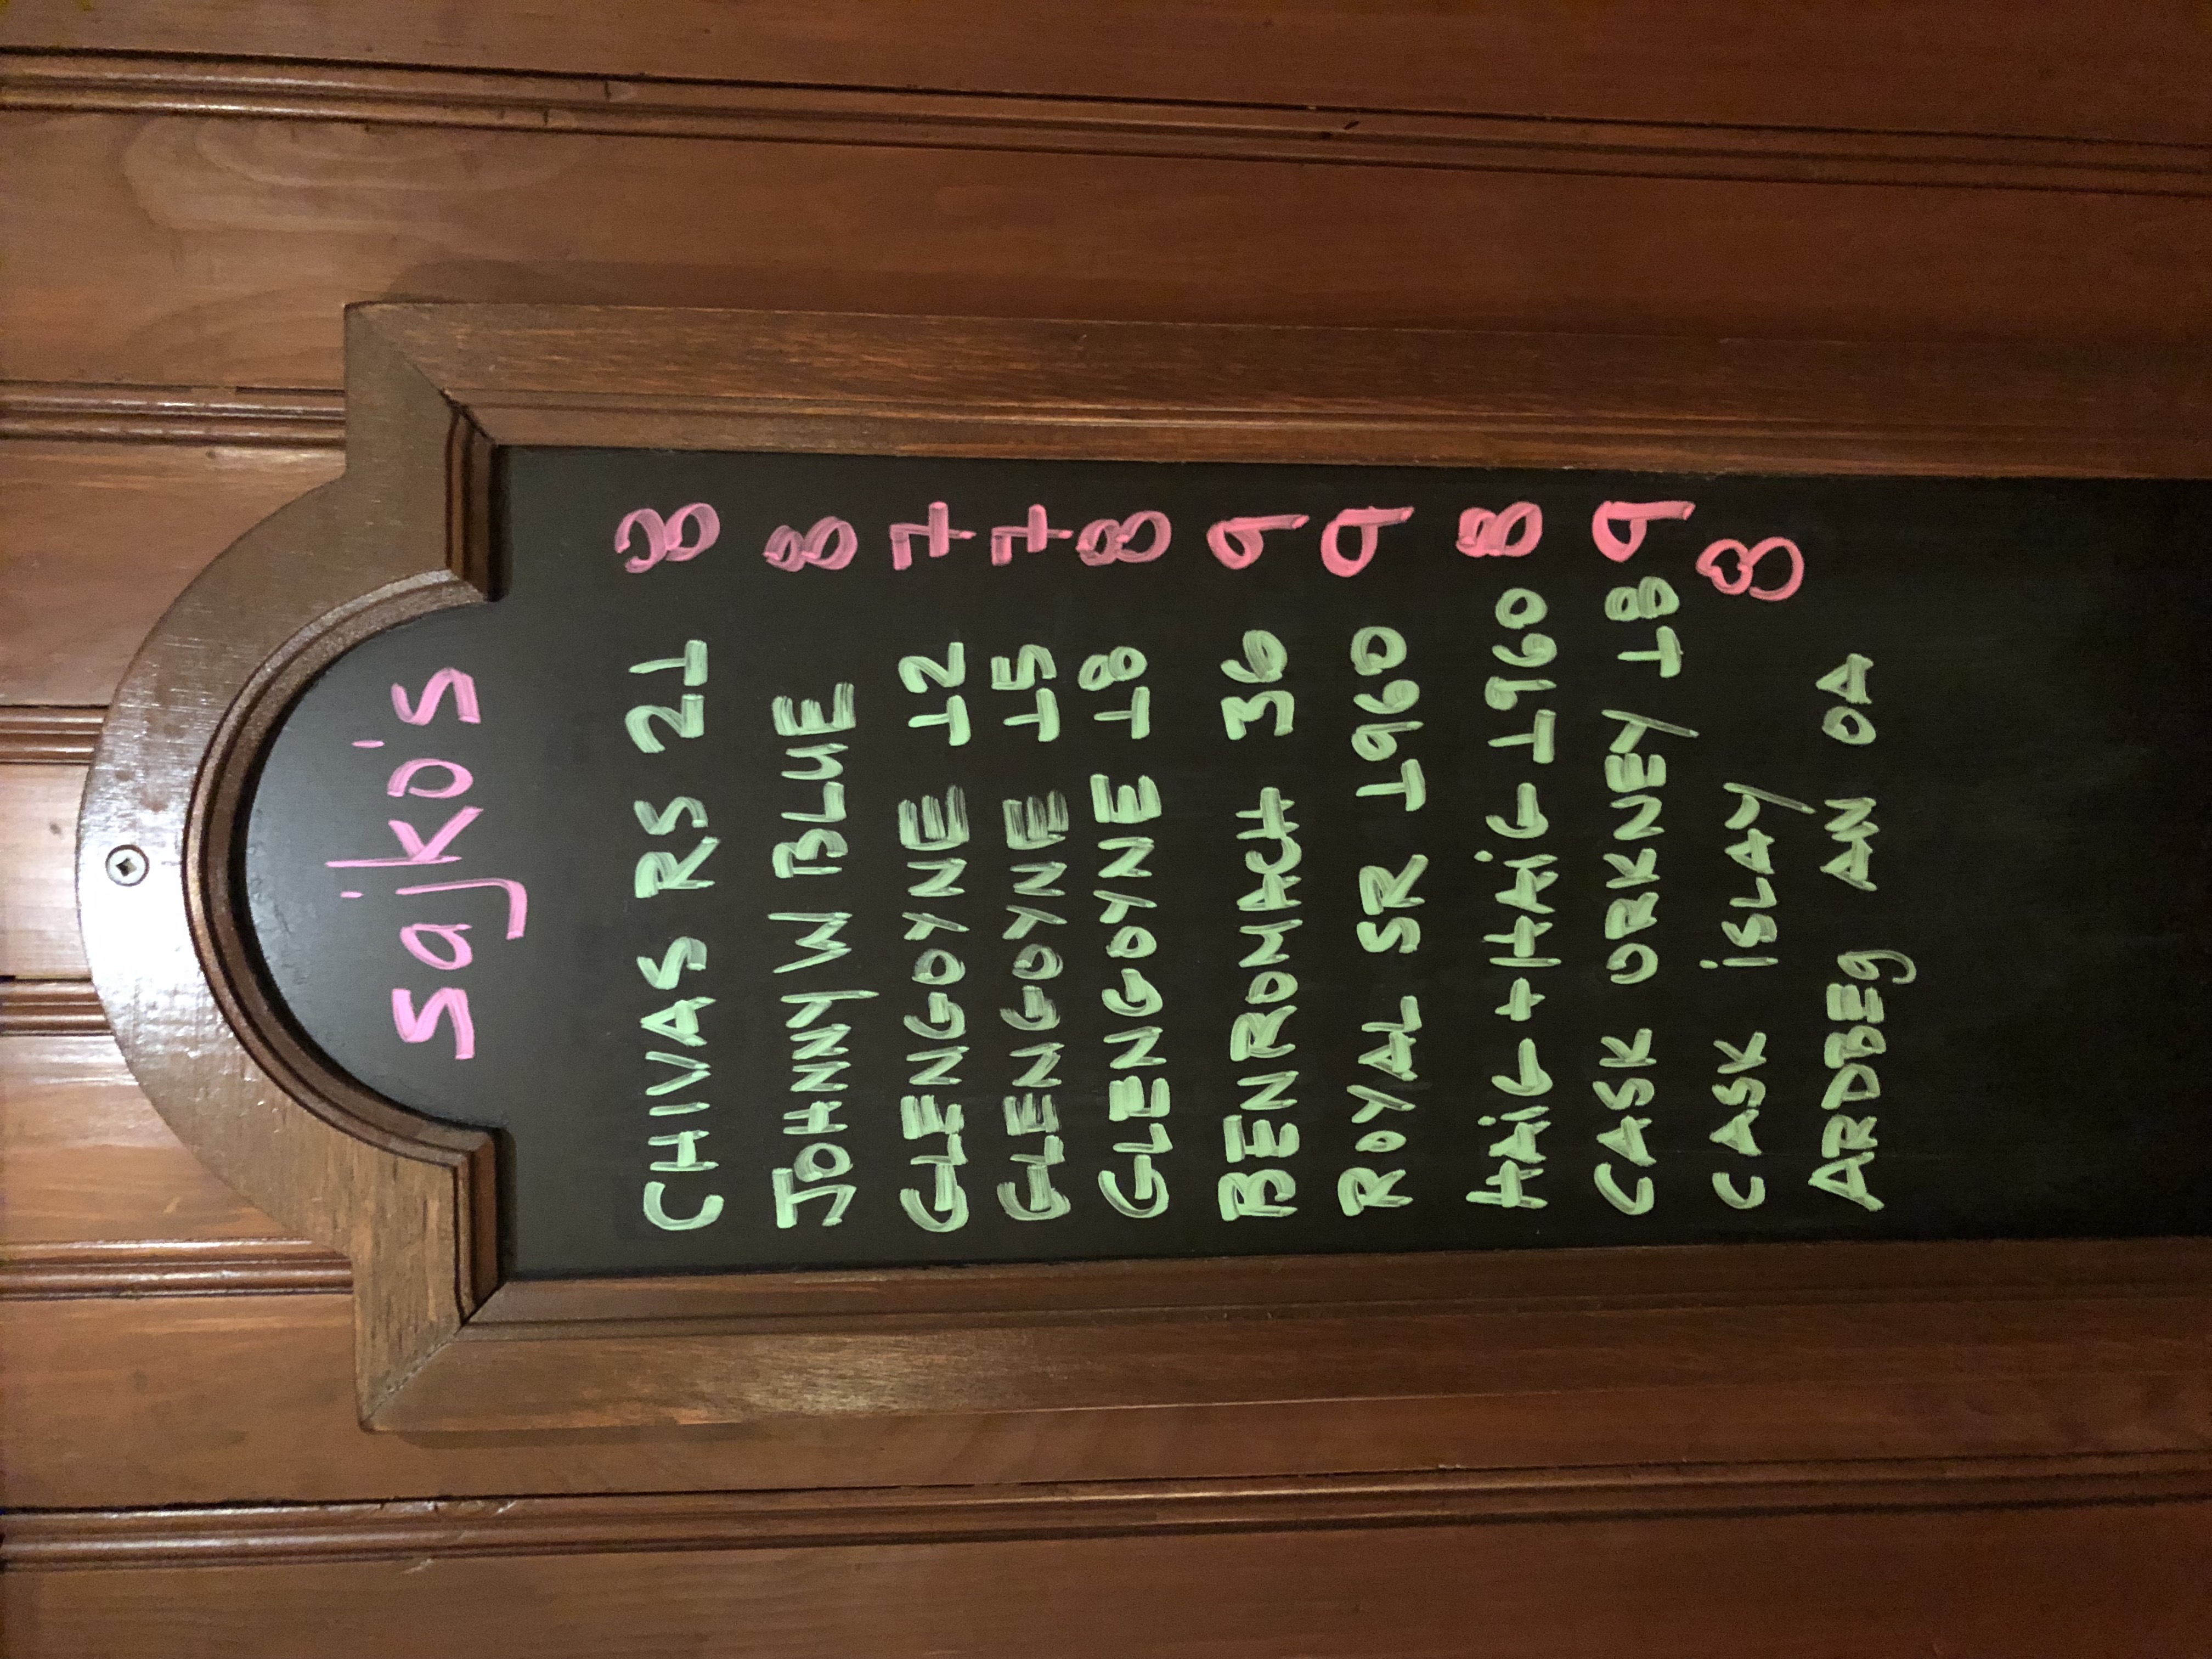 sajko's
CHIVAS RS 21 8
JOHNNY W BLUE 8
GLENGOYNE 12 7
GLENGOYNE 15 7
GLENGOYNE 18 8
BENROMACH 36 9
ROYAL SR 1960 9
HAiG + HAiG 1960 8
CASK ORKNEY 18 9
CASK iSLAY 8
ARDBEg AN OA